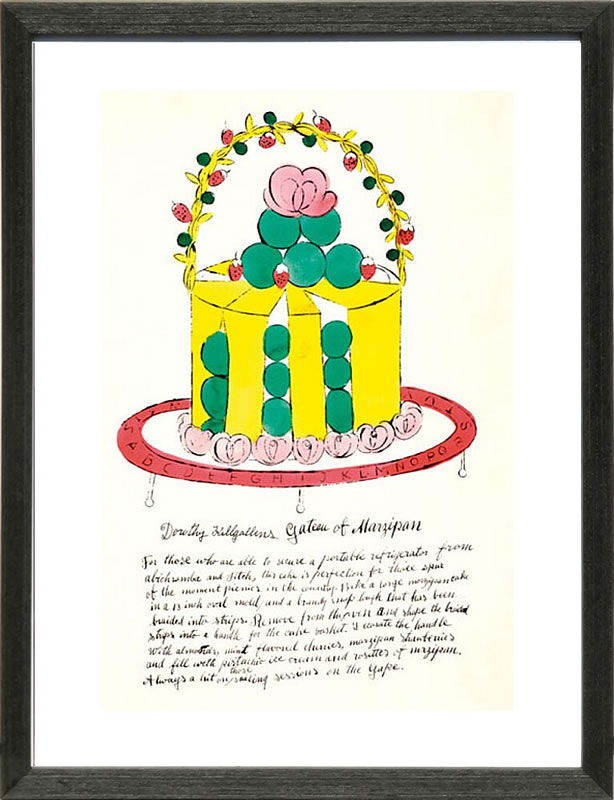 A B C D E F G H I J K L M N O P Q R S T U
Dorothy Killgallens Gateau of Marzipan
For those who are able to secure a portable refrigerator from
abichrombe and fitch, this cake is perfection for those spur
of the moment picnics in the country. Bake a large marzipan cake
in a 13 inch oval mold, and a brandy snap dough that has been
braided into strips. Remove from the oven and shape the braided
strips into a handle for the cake basket. Decorate the handle
with almonds, mint flavored cherries, marzipan strawberries
and fill with pistachio ice cream and rosittes of mrzipan.
Always a hit on those sailing sessions on the Cape.